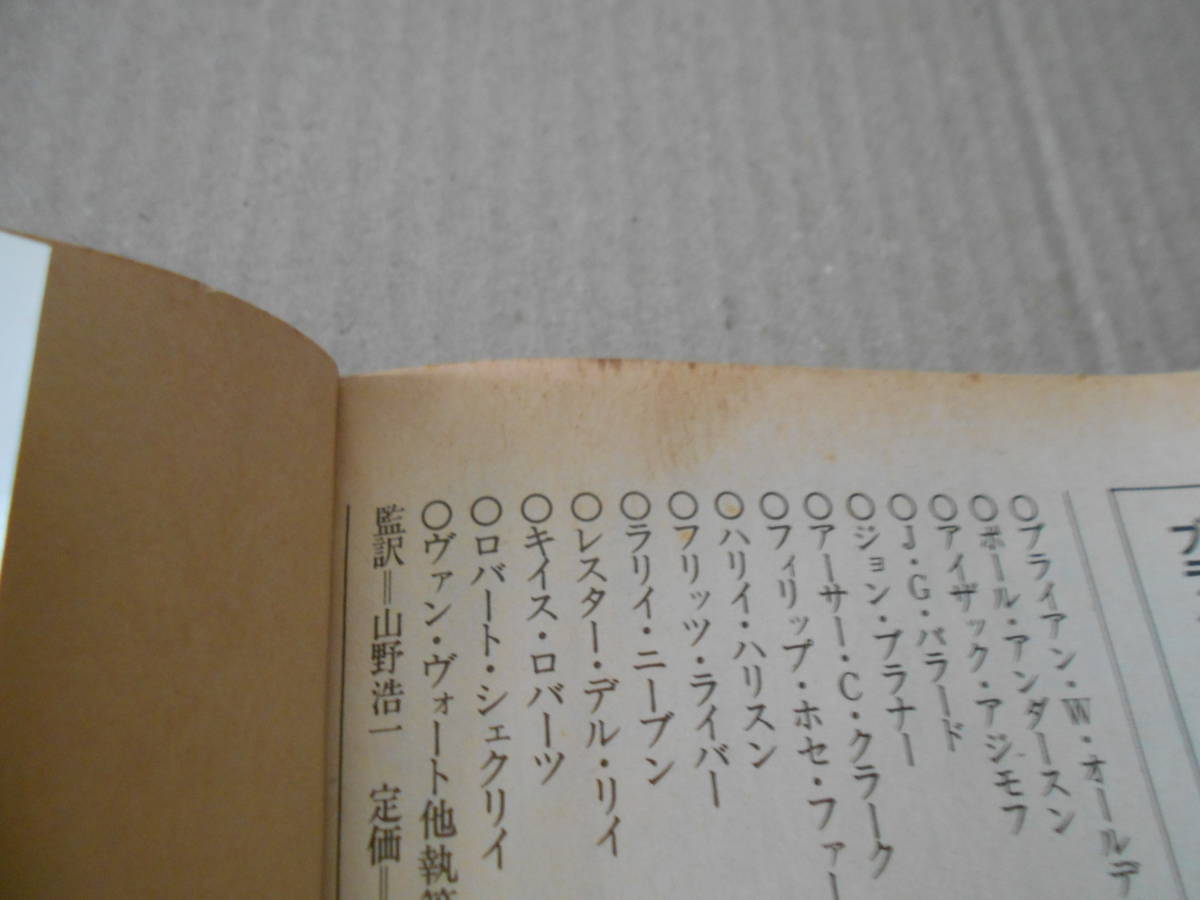 ○ブライアン・W・オールデ
○ポール・アンダースン
○アイザック・アジモフ
○J・G・バラード
○ジョン・ブラナー
○アーサー・C・クラーク
○フィリップ・ホセ・ファー
○ハリイ・ハリスン
○フリッツ・ライバー
○ラリイ・ニーブン
○レスター・デル・リイ
○キイス・ロバーツ
○ロバート・シェクリイ
○ヴァン・ヴォート他執筆
監訳＝山野浩一 定価＝